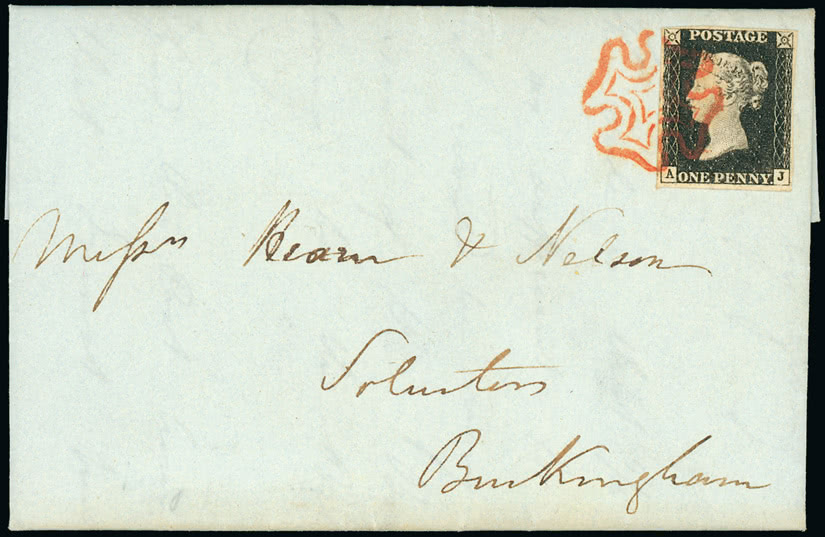 POSTAGE
ONE PENNY.
A J
Messrs Hearn & Nelson
Solicitors
Buckingham